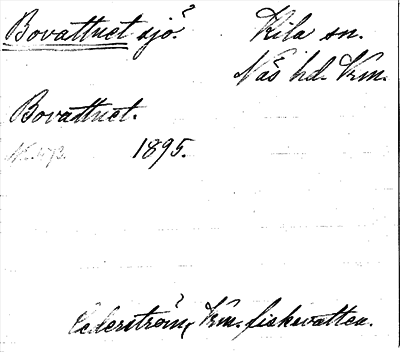 Bovattnet sjö. Kila sn.
Näs hd. Vrm.
Bovattnet.
1895.
Cederström, Vrm. fiskevatten.